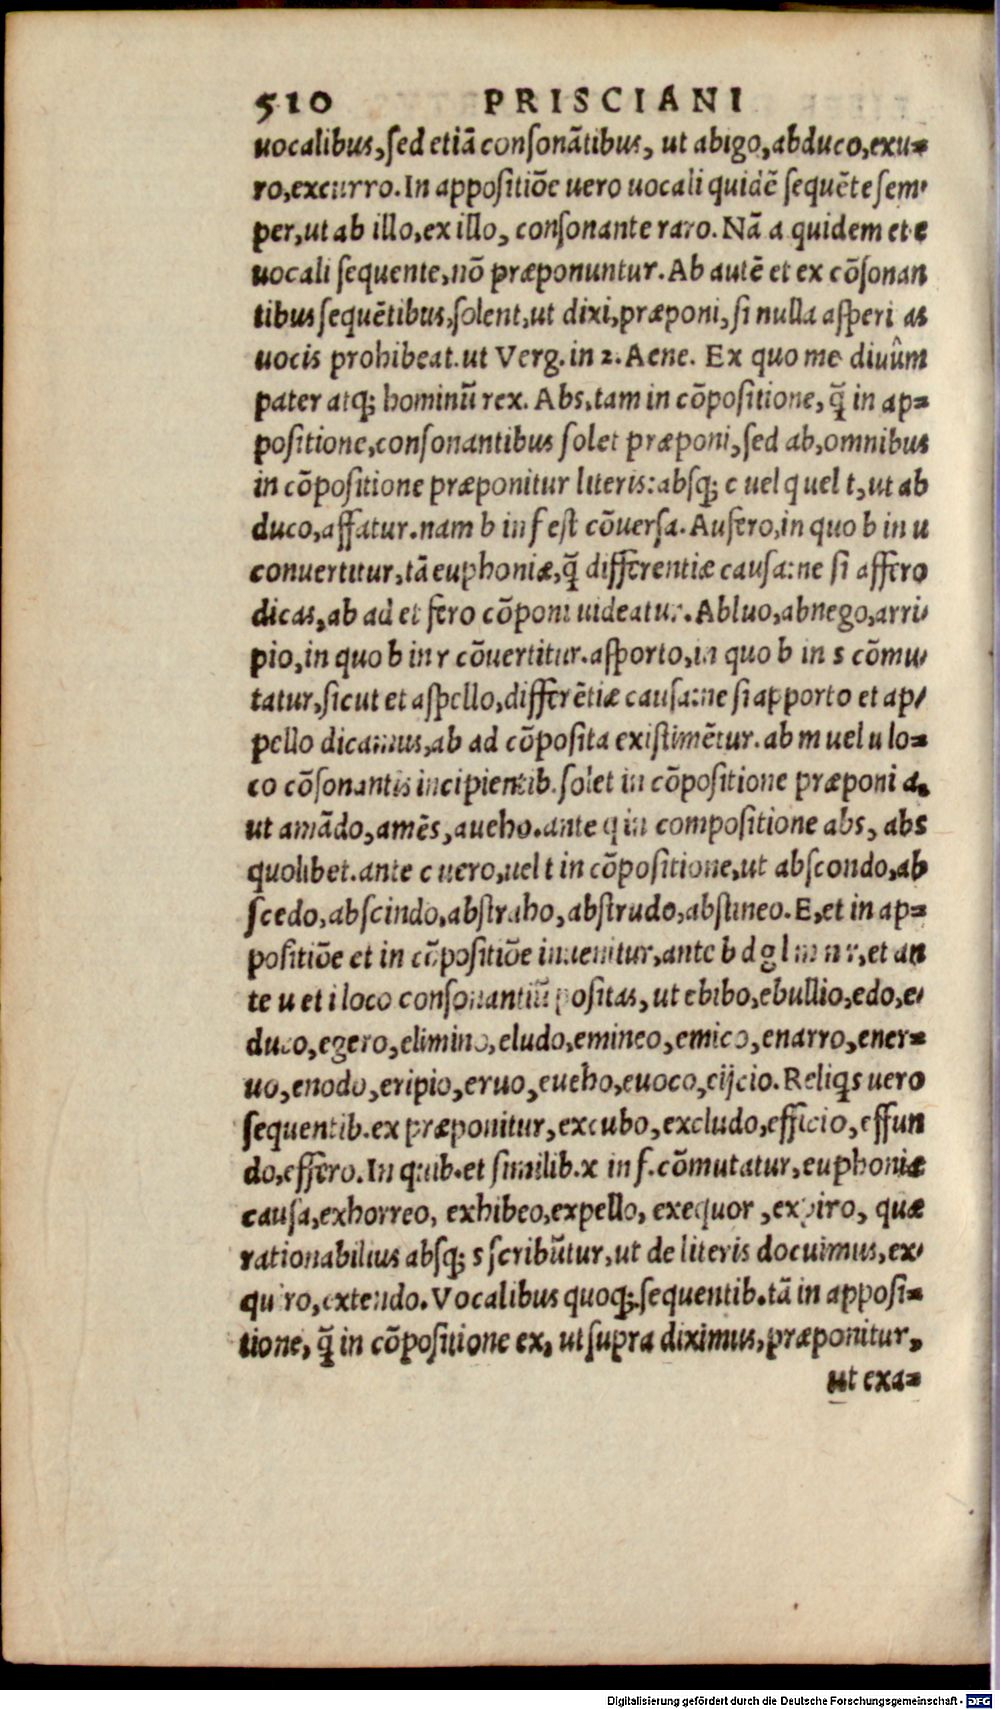 510 PRISCIANI
uocalibus, sed etiā consonātibus, ut abigo, abduco, exu-
ro, excurro. In appositiōe uero uocali quidē sequēte sem-
per, ut ab illo, ex illo, consonante raro. Nā a quidem et e
uocali sequente, nō præponuntur. Ab autē et ex cōsonan
tibus sequētibus, solent, ut dixi, præponi, si nulla asperi as
uocis prohibeat. ut Verg. in 2. Aene. Ex quo me diuûm
pater atq; hominū rex. Abs, tam in cōpositione, q̄ in ap-
positione, consonantibus solet præponi, sed ab, omnibus
in cōpositione præponitur literis: absq; c uel q uel t, ut ab
duco, affatur. nam b in f est cōuersa. Aufero, in quo b in u
conuertitur, tā euphoniæ, q̄ differentiæ causa: ne si affero
dicas, ab ad et fero cōponi uideatur. Abluo, abnego, arri-
pio, in quo b in r cōuertitur. asporto, in quo b in s cōmu-
tatur, sicut et aspello, differētiæ causa: ne si apporto et ap-
pello dicamus, ab ad cōposita existimētur. ab m uel u lo-
co cōsonantis incipientib. solet in cōpositione præponi a,
ut amādo, amēs, aueho. ante q in compositione abs, abs
quolibet. ante c uero, uel t in cōpositione, ut abscondo, ab
scedo, abscindo, abstraho, abstrudo, abstineo. E, et in ap-
positiōe et in cōpositiōe inuenitur, ante b d g l m n r, et an
te u et i loco consonantiū positas, ut ebibo, ebullio, edo, e-
duco, egero, elimino, eludo, emineo, emico, enarro, ener-
uo, enodo, eripio, eruo, eueho, euoco, eijcio. Reliq̄s uero
sequentib. ex præponitur, excubo, excludo, efficio, effun
do, effero. In quib. et similib. x in f. cōmutatur, euphoniæ
causa, exhorreo, exhibeo, expello, exequor, expiro, quæ
rationabilius absq; s scribūtur, ut de literis docuimus, ex-
quiro, extendo. Vocalibus quoq;. sequentib. tā in apposi-
tione, q̄ in cōpositione ex, ut supra diximus, præponitur,
ut exa-
Digitalisierung gefördert durch die Deutsche Forschungsgemeinschaft - DFG